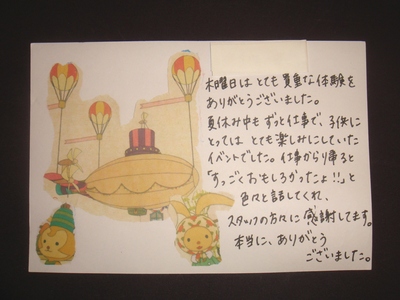 木曜日は とても 貴重な体験を
ありがとうございました。
夏休み中も ずっと仕事で、子供に
とっては とても楽しみにしていた
イベントでした。仕事から帰ると
「すっごくおもしろかったよ!!」と
色々と話してくれ、
スタッフの方々に 感謝してます。
本当に、ありがとう
ございました。